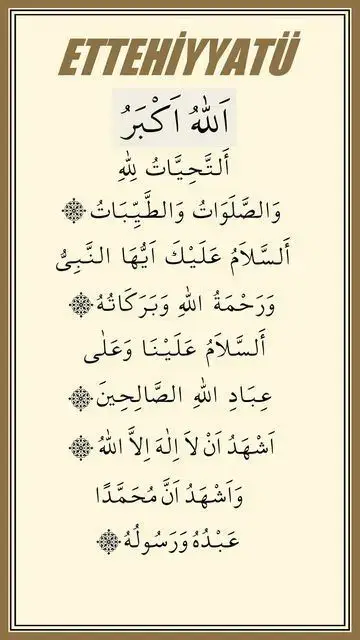 ETTEHİYYATÜ
اَللّٰهُ اَكْبَرُ
أَلتَّحِيَّاتُ لِلّٰهِ
وَالصَّلَوَاتُ وَالطَّيِّبَاتُ
أَلسَّلاَمُ عَلَيْكَ اَيُّهَا النَّبِىُّ
وَرَحْمَةُ اللّٰهِ وَبَرَكَاتُهُ
أَلسَّلاَمُ عَلَيْنَا وَعَلٰى
عِبَادِ اللّٰهِ الصَّالِحِينَ
اَشْهَدُ اَنْ لاَ اِلٰهَ اِلاَّ اللّٰهُ
وَاَشْهَدُ اَنَّ مُحَمَّدًا
عَبْدُهُ وَرَسُولُهُ